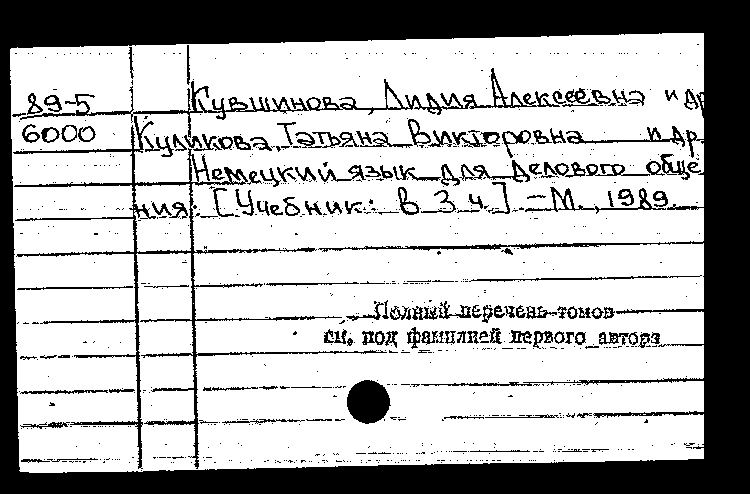 89-5
6000
Кувшинова, Лидия Алексеевна и др
Куликова, Татьяна Викторовна и др.
Немецкий язык для делового обще
ния: [Учебник: В 3 ч.] – М., 1989.
Полный перечень томов
см. под фамилией первого автора